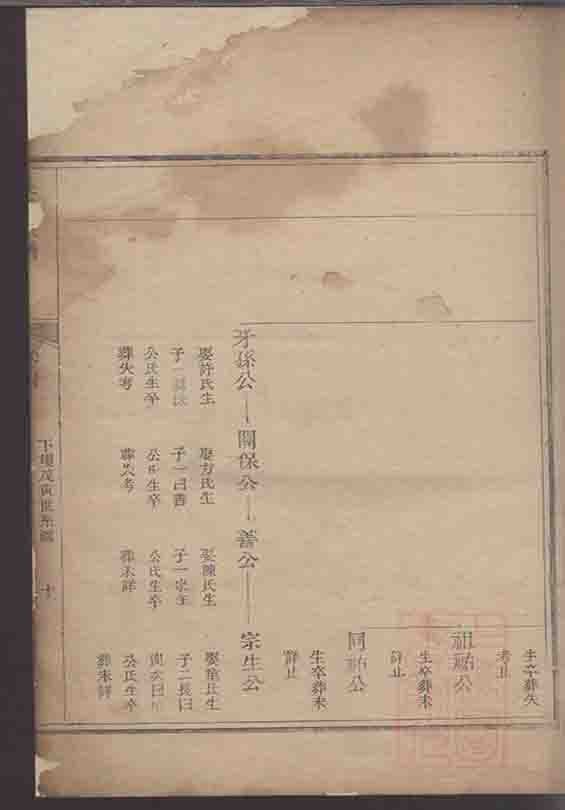 生卒葬失
考止
祖公
生卒葬未
詳止
同公
生卒葬未
詳止
牙孫公
娶許氏生
子一
公氏生卒
葬失考
關保公
娶方氏生
子一曰善
公氏生卒
葬失考
善公
娶陳氏生
子一宗生
公氏生卒
葬未詳
宗生公
娶氏生
子二長曰
次曰
公氏生卒
葬未詳
世系圖
十